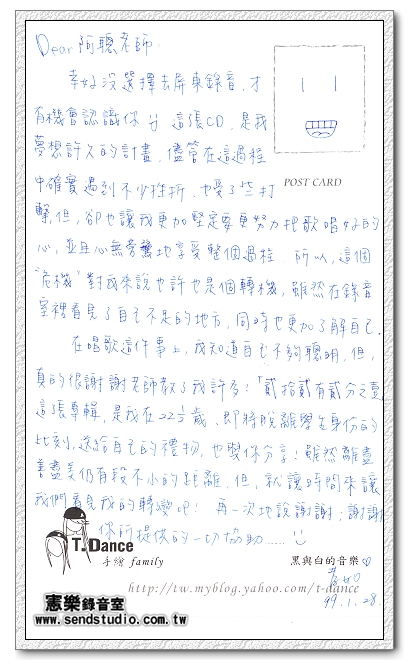 Dear 阿聰老師:
幸好沒選擇去屏東錄音,才
有機會認識你 這張CD,是我
夢想許久的計畫,儘管在這過程
中確實遇到不少挫折,也受了些打
POST CARD
擊,但,卻也讓我更加堅定要更努力把歌唱好的
心,並且心無旁騖地享受整個過程.所以,這個
"危機"對我來說也許也是個轉機,雖然在錄音
室裡看見了自己不足的地方,同時也更加了解自己.
在唱歌這件事上,我知道自己不夠聰明.但,
真的很謝謝老師教了我許多!「貳拾貳有貳分之壹」
這張專輯,是我在22½歲、即將脫離學生身份的
此刻,送給自己的禮物,也與你分享!雖然離盡
善盡美仍有段不小的距離.但,就讓時間來讓
我們看見我的轉變吧! 再一次地說謝謝;謝謝
你所提供的一切協助......
T.Dance
手繪 family
黑與白的音樂♡
http://tw.myblog.yahoo.com/t-dance
99.1.28.
憲樂錄音室
www.sendstudio.com.tw